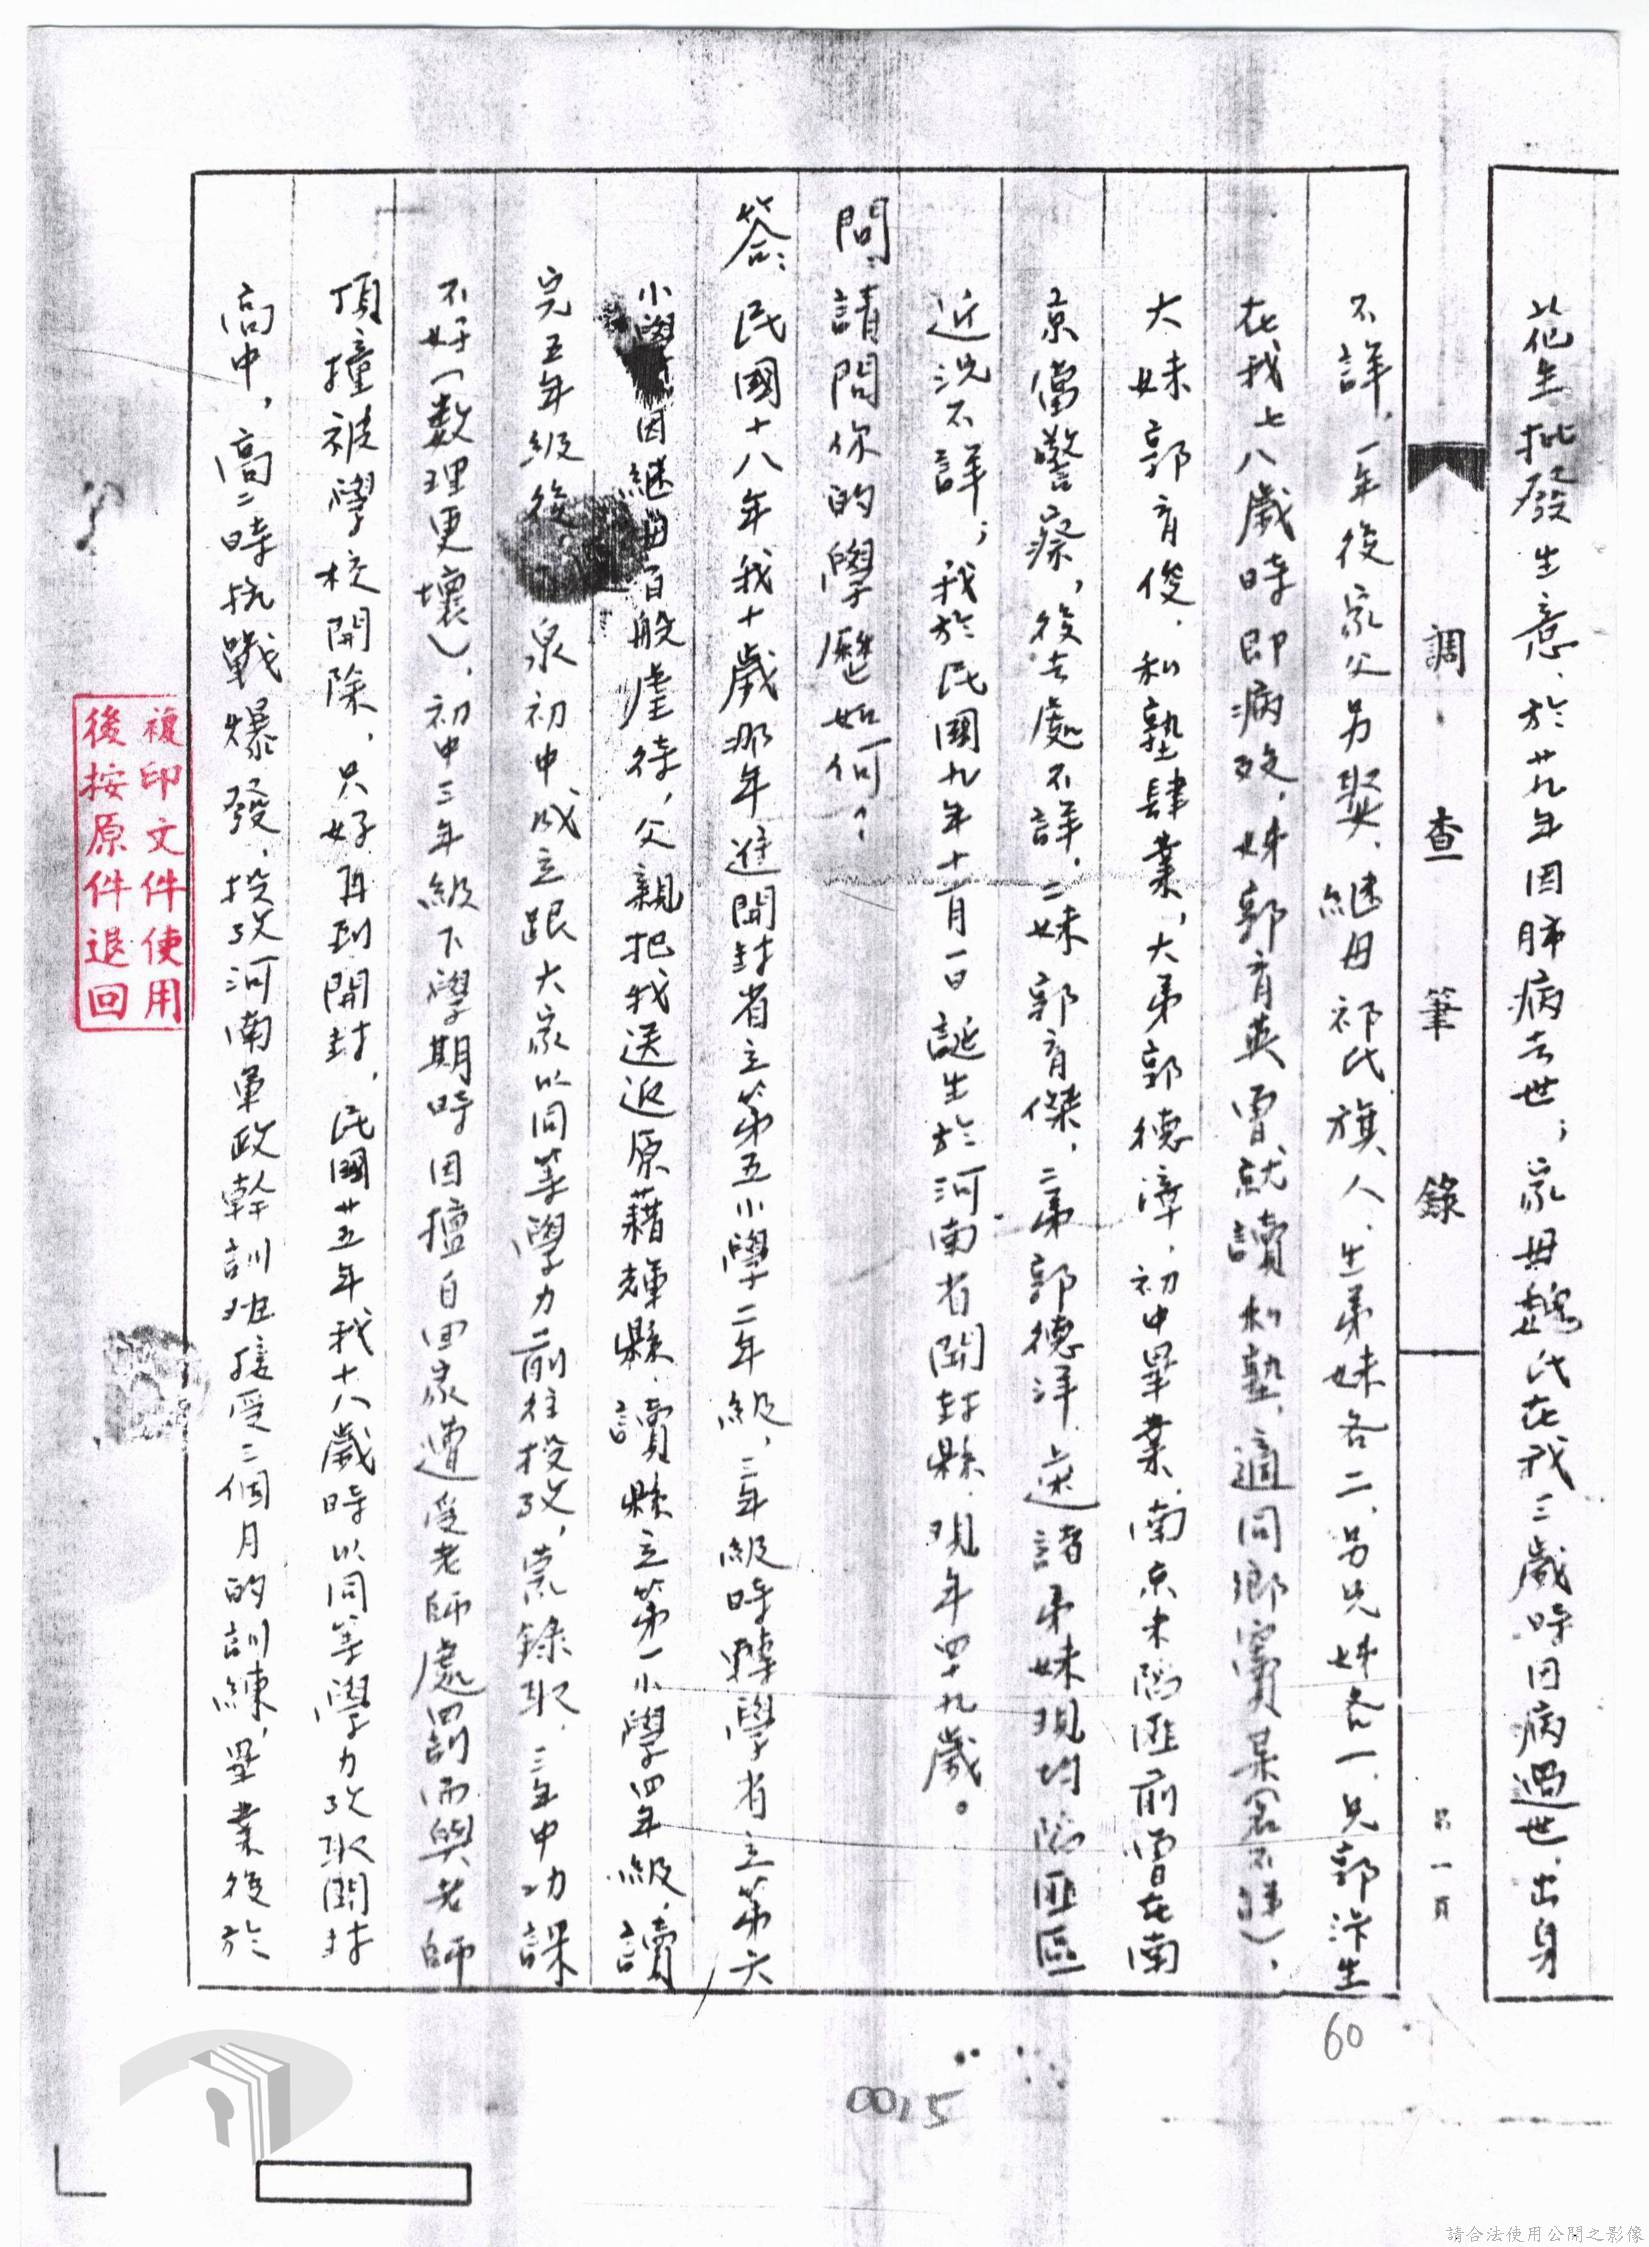 花生批發生意，於廿九年因肺病去世；家母魏氏在我三歲時因病過世，出身
調查筆錄
第一頁
不詳，一年後家父另娶，繼母祁氏旗人，生弟妹各二，另兄姊各一，兄郭汴生
在我七八歲時即病故，姊郭育英曾就讀私塾，適同鄉竇某（名不詳），
大妹郭育俊，私塾肄業，大弟郭德漳，初中畢業，南京未陷匪前曾在南
京當警察，後去處不詳，二妹郭育傑，二弟郭德洋，述諸弟妹現均陷匪區
近況不詳；我於民國九年十一月一日誕生於河南省開封縣，現年四十九歲。
問：請問你的學歷如何？
答：民國十八年我十歲那年進開封省立第五小學二年級，三年級時轉學省立第六
小學，因繼母百般虐待，父親把我送返原藉輝縣，讀縣立第一小學四年級，讀
完五年級後，泉初中成立跟大家以同等學力前往投攷，蒙錄取，三年中功課
不好（数理更壞），初中三年級下學期時因擅自回家遭受老師處罰而與老師
頂撞被學校開除，只好再到開封，民國廿五年我十八歲時以同等學力攷取開封
高中，高二時抗戰爆發，投攷河南軍政幹訓班接受三個月的訓練，畢業後於
複印文件使用
後按原件退回
60
0015
請合法使用公開之影像